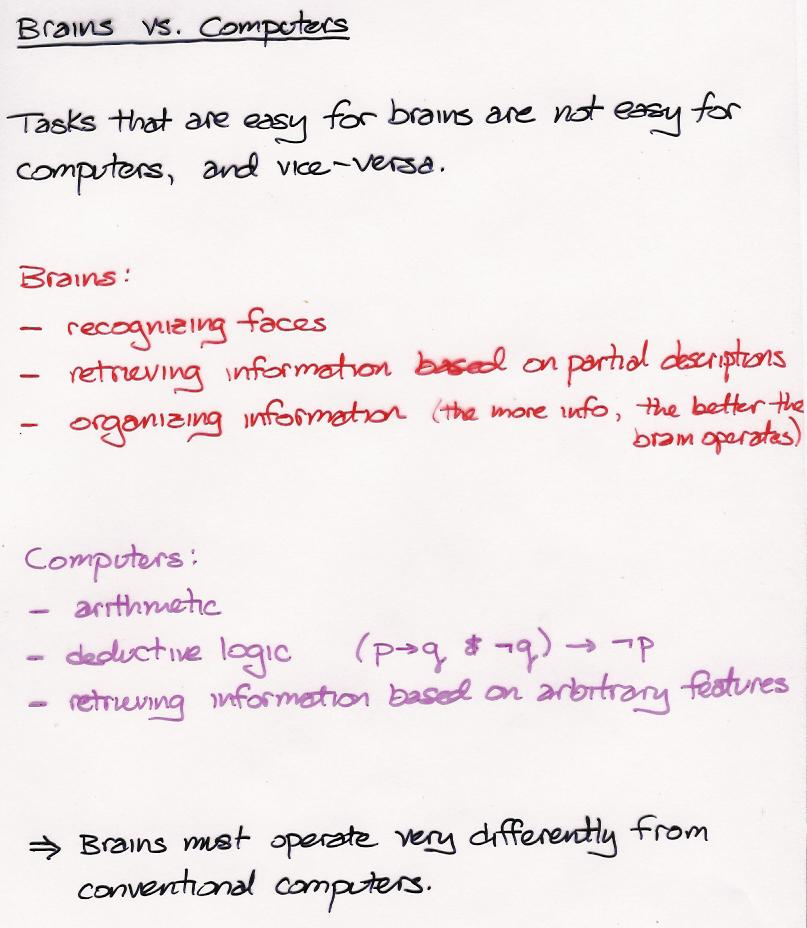 Brains vs. Computers
Tasks that are easy for brains are not easy for
computers, and vice-versa.
Brains:
- recognizing faces
- retrieving information based on partial descriptions
- organizing information (the more info, the better the
brain operates)
Computers:
- arithmetic
- deductive logic (p→q & ¬q) → ¬p
- retrieving information based on arbitrary features
⇒ Brains must operate very differently from
conventional computers.